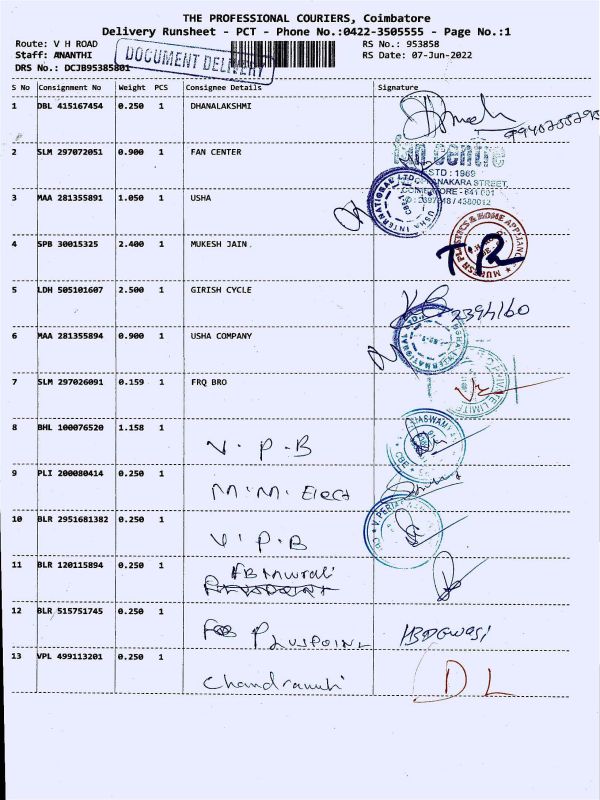 THE PROFESSIONAL COURIERS, Coimbatore
Delivery Runsheet - PCT - Phone No.:0422-3505555 - Page No.:1
Route: V H ROAD RS No.: 953858
Staff: ANANTHI DOCUMENT DELIVERY RS Date: 07-Jun-2022
DRS No.: DCJB95385801
S No Consignment No Weight PCS Consignee Details Signature
1 DBL 415167454 0.250 1 DHANALAKSHMI
2 SLM 297072051 0.900 1 FAN CENTER
fan centre
ESTD : 1969
COIMBATORE - 641 001
3 MAA 281355891 1.050 1 USHA
USHA INTERNATIONAL LTD.
4 SPB 30015325 2.400 1 MUKESH JAIN.
5 LDH 505101607 2.500 1 GIRISH CYCLE
2394160
6 MAA 281355894 0.900 1 USHA COMPANY
USHA INTERNATIONAL LTD.
7 SLM 297026091 0.159 1 FRQ BRO
PRIVATE LIMITED
8 BHL 100076520 1.158 1 V.P.B
9 PLI 200080414 0.250 1 M.M. Elect
10 BLR 2951681382 0.250 1 V.P.B
11 BLR 120115894 0.250 1 FB Murali
12 BLR 515751745 0.250 1 PLUSPOINT
13 VPL 499113201 0.250 1 DL